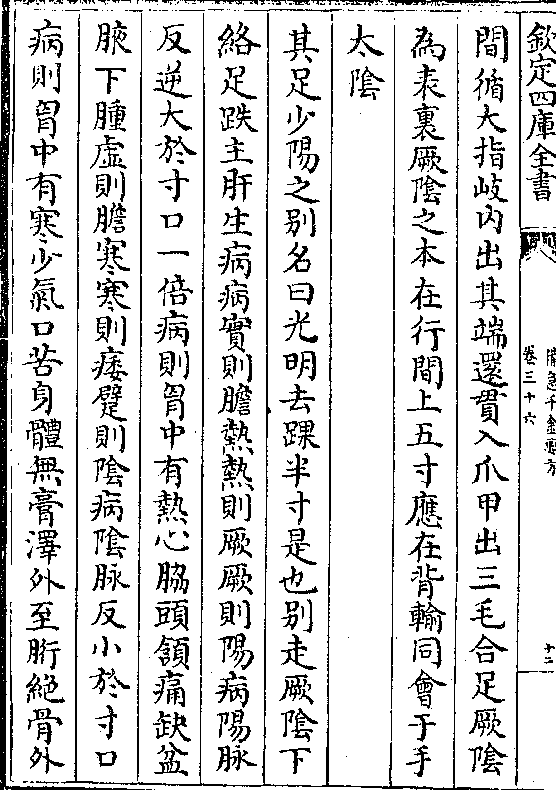 欽定四庫全書
備急千金要方
卷三十六
十二
間循大指岐内出其端還貫入爪甲出三毛合足厥陰
為表裏厥陰之本在行間上五寸應在背輸同會于手
太陰
其足少陽之别名曰光明去踝半寸是也别走厥陰下
絡足趺主肝生病病實則膽熱熱則厥厥則陽病陽脉
反逆大於寸口一倍病則胷中有熱心脇頭頷痛缺盆
腋下腫虛則膽寒寒則痿躄則陰病陰脉反小於寸口
病則胷中有寒少氣口苦身體無膏澤外至胻絶骨外